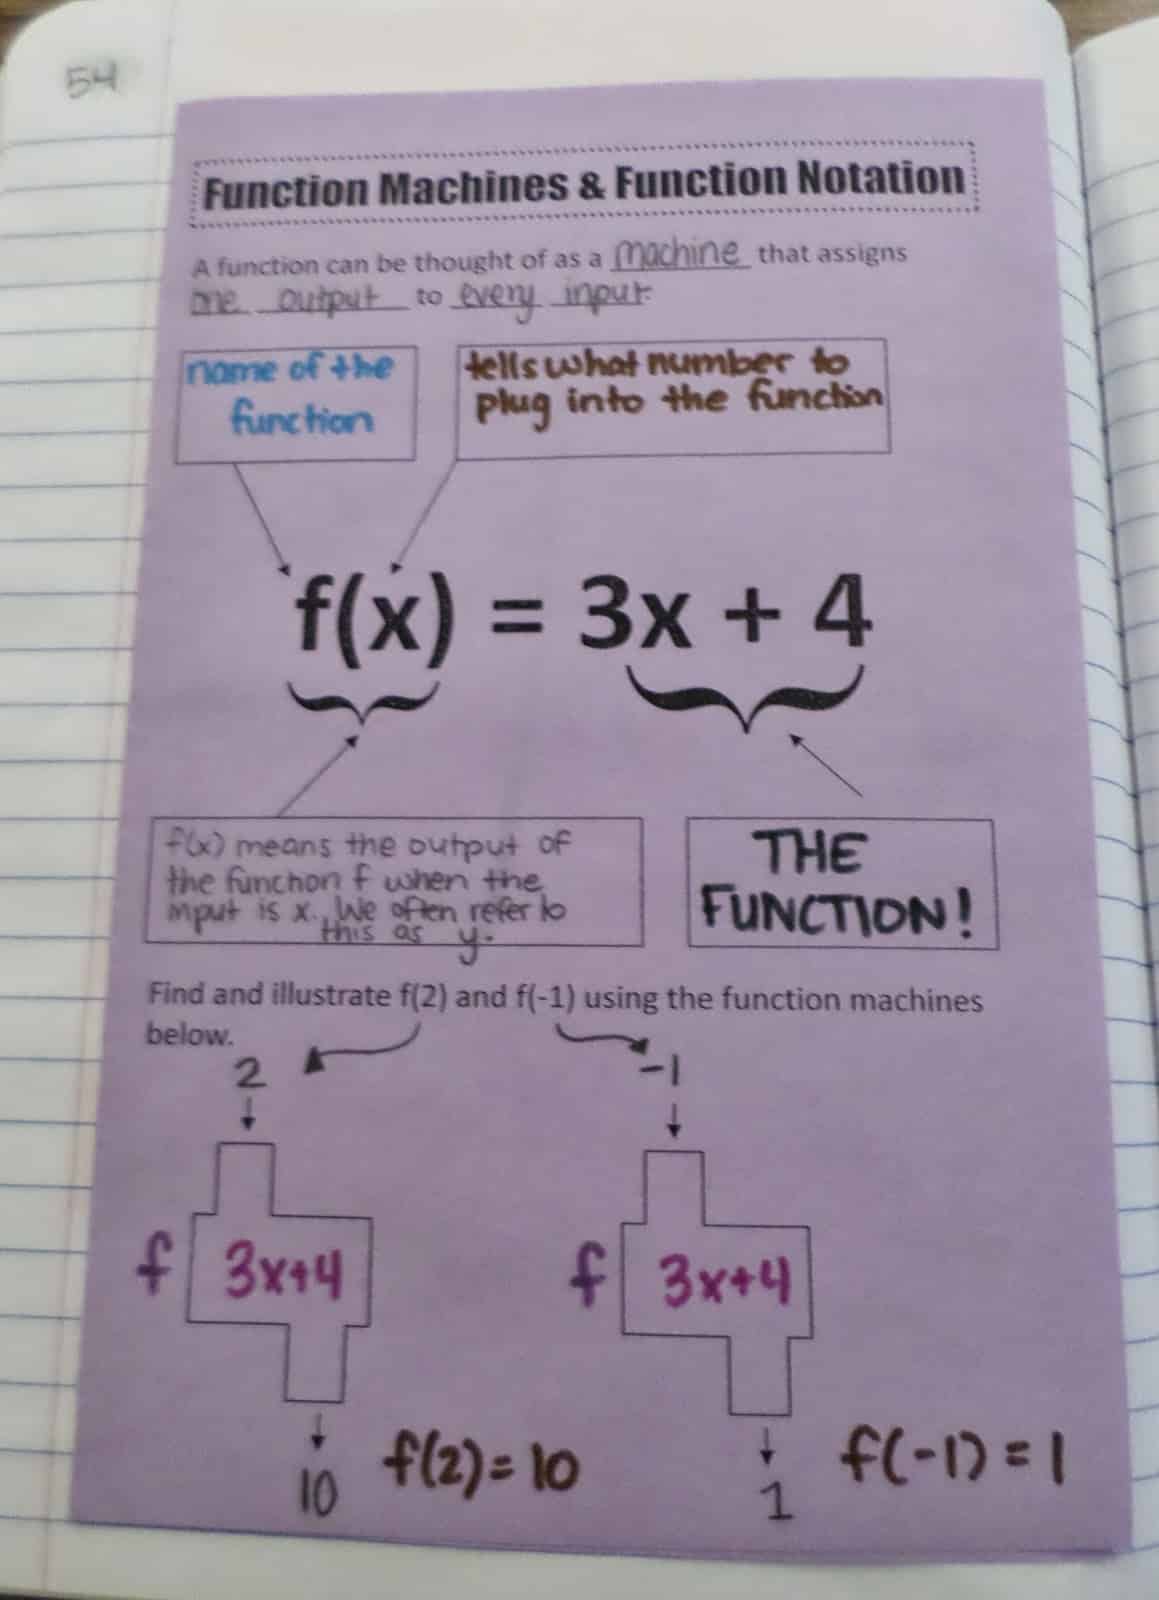 54
Function Machines & Function Notation
A function can be thought of as a machine that assigns
one output to every input.
name of the
function
tells what number to
plug into the function
f(x) = 3x + 4
f(x) means the output of
the function f when the
input is x. We often refer to
this as y.
THE
FUNCTION!
Find and illustrate f(2) and f(-1) using the function machines
below.
2
-1
f 3x+4
f 3x+4
10
f(2)= 10
1
f(-1) = 1